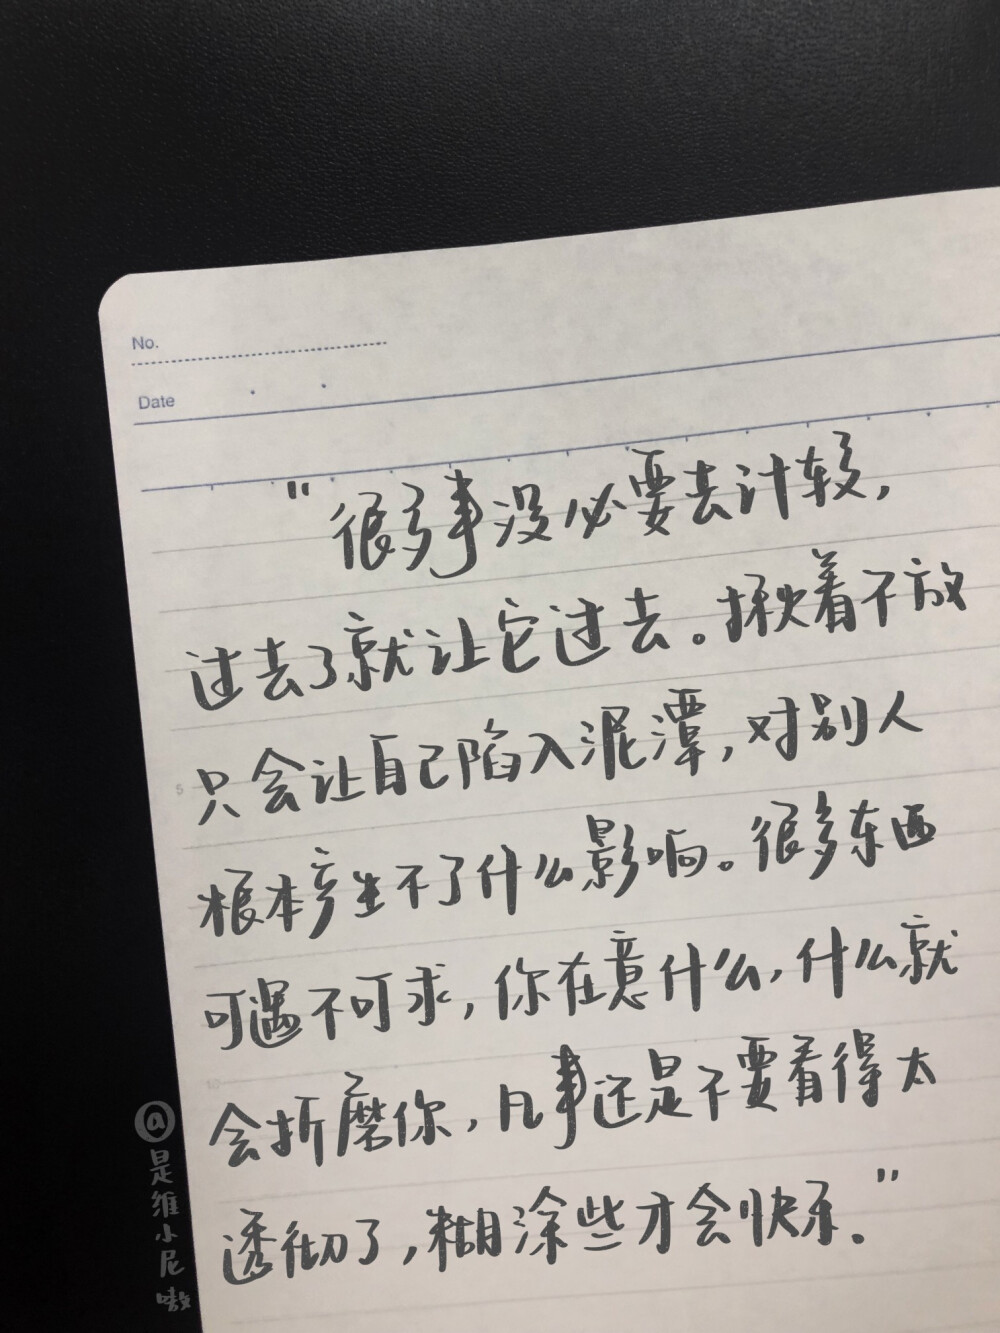 No.
Date
"很多事没必要去计较,
过去了就让它过去。揪着不放
5
只会让自己陷入泥潭,对别人
根本产生不了什么影响。很多东西
可遇不可求,你在意什么,什么就
10
会折磨你,凡事还是不要看得太
透彻了,糊涂些才会快乐."
@是维小尼嗷